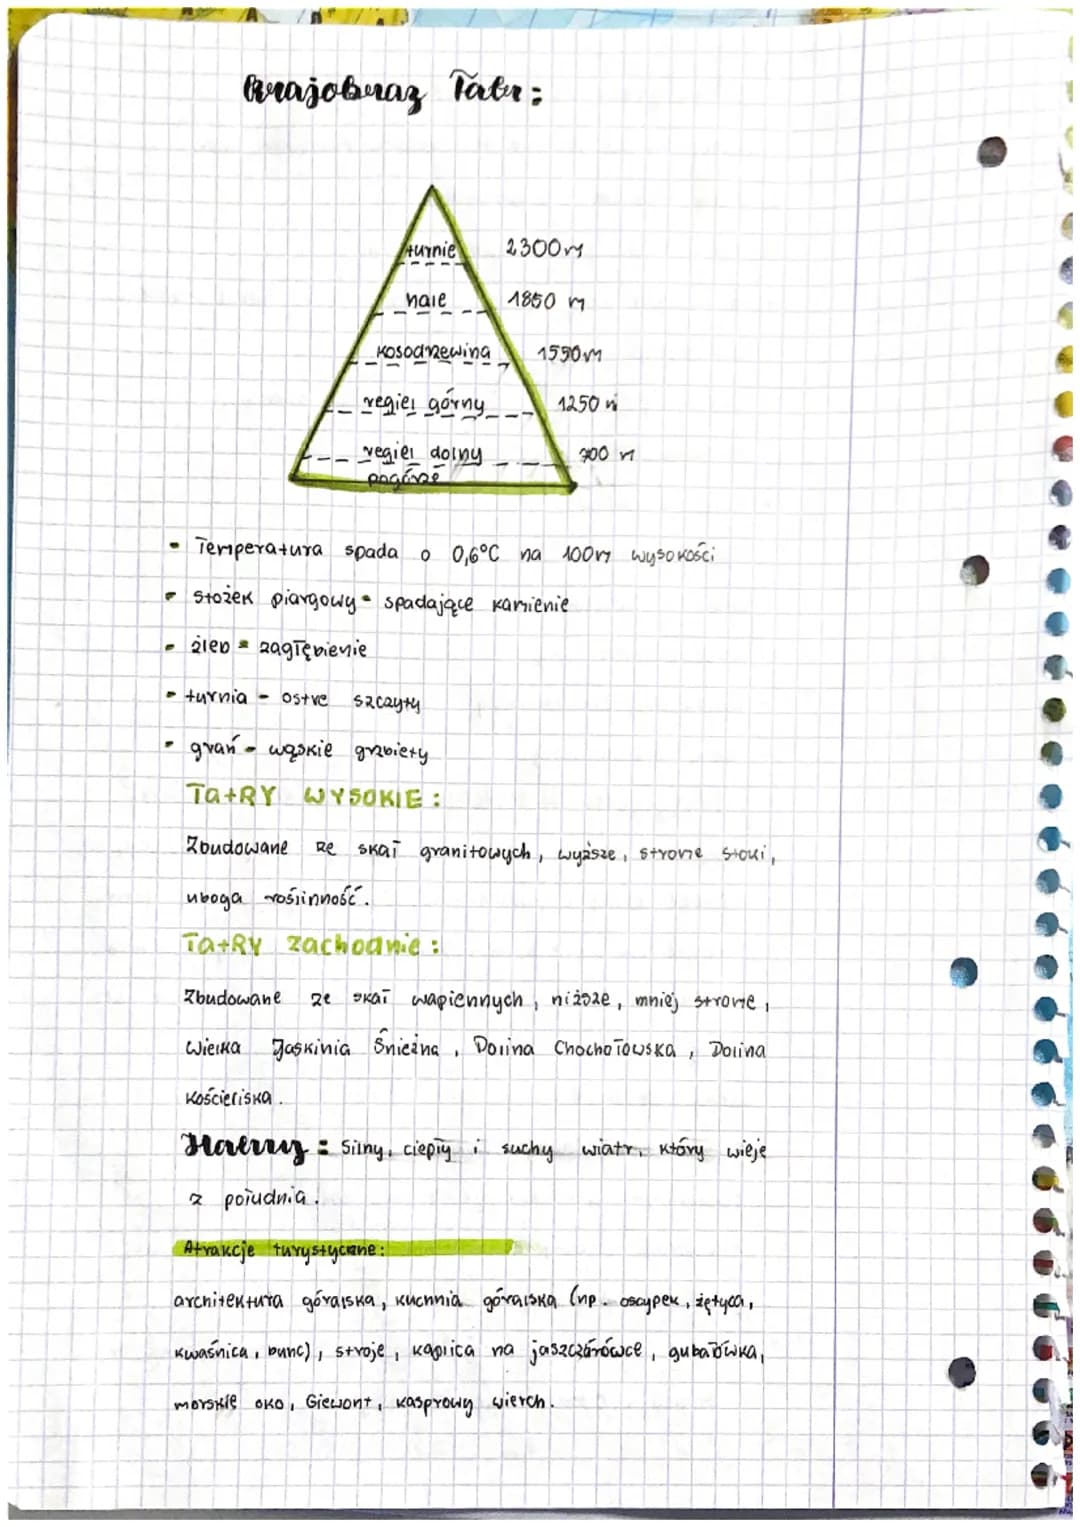 Krajobraz Tatr:
turnie 2300m
hale 1850 m
kosodrzewina 1550m
regiel górny 1250 m
regiel dolny 700 m
pogórze
- Temperatura spada o 0,6°C na 100m wysokości
- stożek piargowy - spadające kamienie
- żleb - zagłębienie
- turnia - ostre szczyty
- grań - wąskie grzbiety
TatRY WYSOKIE:
Zbudowane ze skał granitowych, wyższe, strome stoki,
uboga roślinność.
TatRY zachodnie:
Zbudowane ze skał wapiennych, niższe, mniej strome,
Wielka Jaskinia Śnieżna, Dolina Chochołowska, Dolina
Kościeliska.
Halny: Silny, ciepły i suchy wiatr, który wieje
z południa.
Atrakcje turystyczne:
architektura góralska, kuchnia góralska (np. oscypek, żętyca,
kwaśnica, bunc), stroje, kaplica na jaszczórówce, gubałówka,
morskie oko, Giewont, kasprowy wierch.